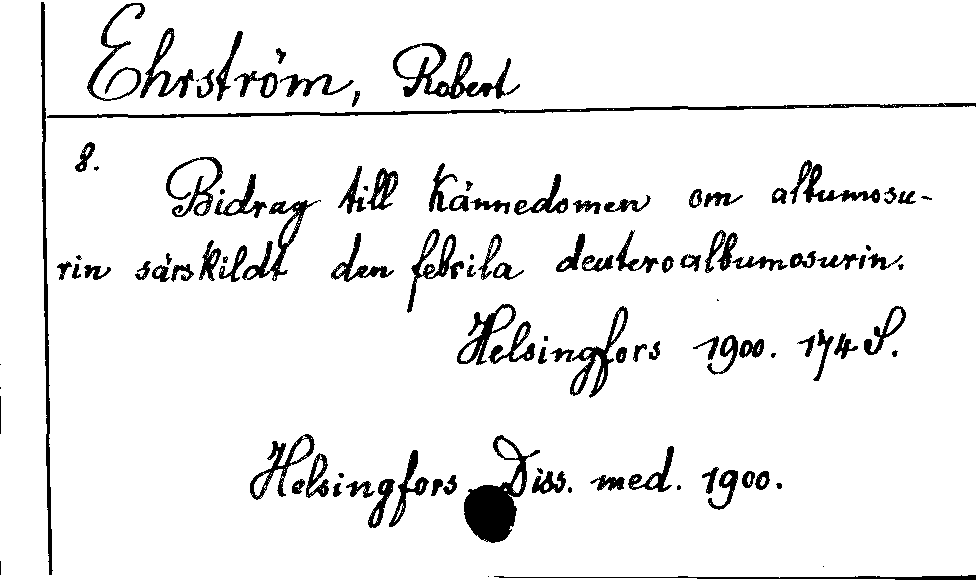 Ehrström, Robert
8.
Bidrag till Kännedomen om albumosu-
rin särskildt den febrila deuteroalbumosurin.
Helsingfors 1900. 174 S.
Helsingfors Diss. med. 1900.